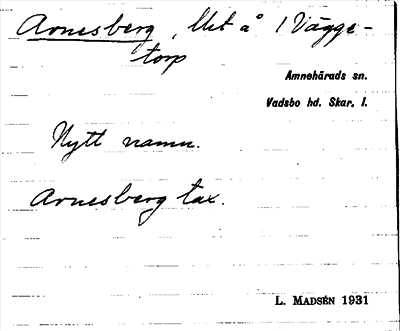 Arnesberg, Met å 1 Vägge-
torp
Amnehärads sn.
Vadsbo hd. Skar. l.
Nytt namn.
Arnesberg tax.
L. MADSÉN 1931